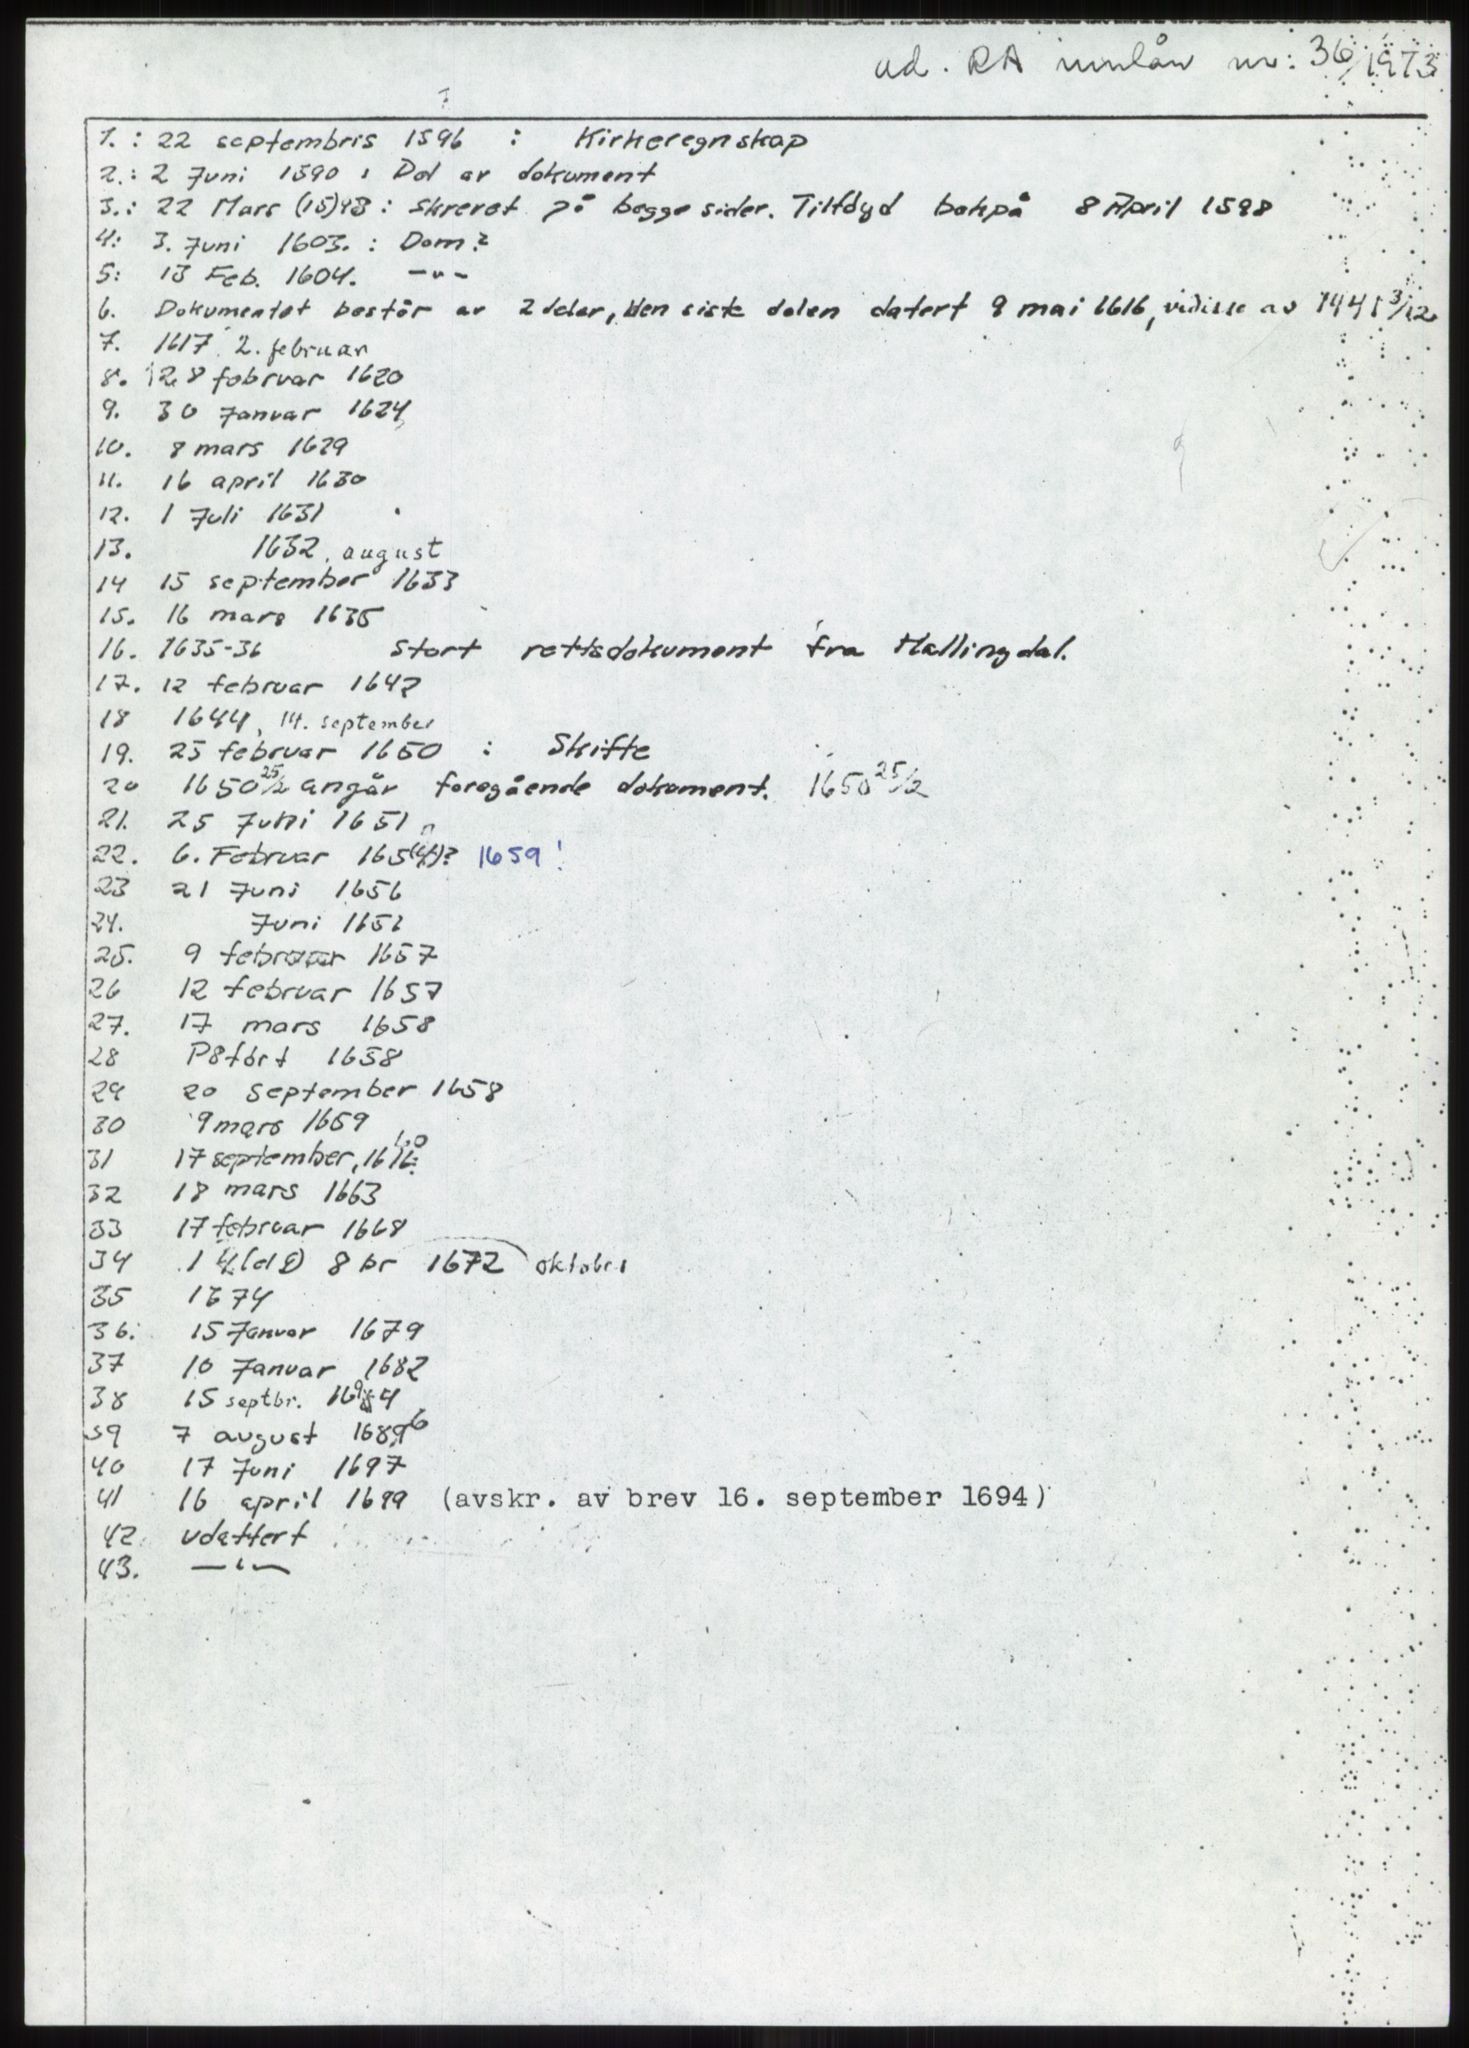 ad. RA innlån nr: 36/1973
1. : 22 septembris 1596 : Kirkeregnskap
2. : 2 Juni 1590 : Del av dokument
3. : 22 Mars (15)93 : Skrevet på begge sider. Tilføyd bakpå 8 April 1598
4: 3. Juni 1603. : Dom?
5: 13 Feb. 1604. -"-
6. Dokumentet består av 2 deler, den siste delen datert 9 mai 1616, vidisse av 3/12
7. 1617, 2. februar
8. 28 februar 1620
9. 30 Januar 1624
10. 8 mars 1629
11. 16 april 1630
12. 1 Juli 1631
13. 1632, august
14 15 september 1633
15. 16 mars 1635
16. 1635-36 Stort rettsdokument fra Hallingdal.
17. 12 februar 1642
18 1644, 14. september
19. 25 februar 1650 : Skifte
20 1650 25/2 angår foregående dokument. 1650 25/2
21. 25 Juni 1651
22. 6. Februar 165(4)? 1659!
23 21 Juni 1656
24. Juni 1656
25. 9 februar 1657
26 12 februar 1657
27. 17 mars 1658
28 Påført 1658
29 20 september 1658
30 9 mars 1659
31 17 september, 1660
32 18 mars 1663
33 17 februar 1668
34 1 8 br 1672 oktober
35 1674
36. 15 Januar 1679
37 10 Januar 1682
38 15 septbr. 1694
39 7 august 1696
40 17 Juni 1697
41 16 april 1699 (avskr. av brev 16. september 1694)
42 udattert
43. -"-